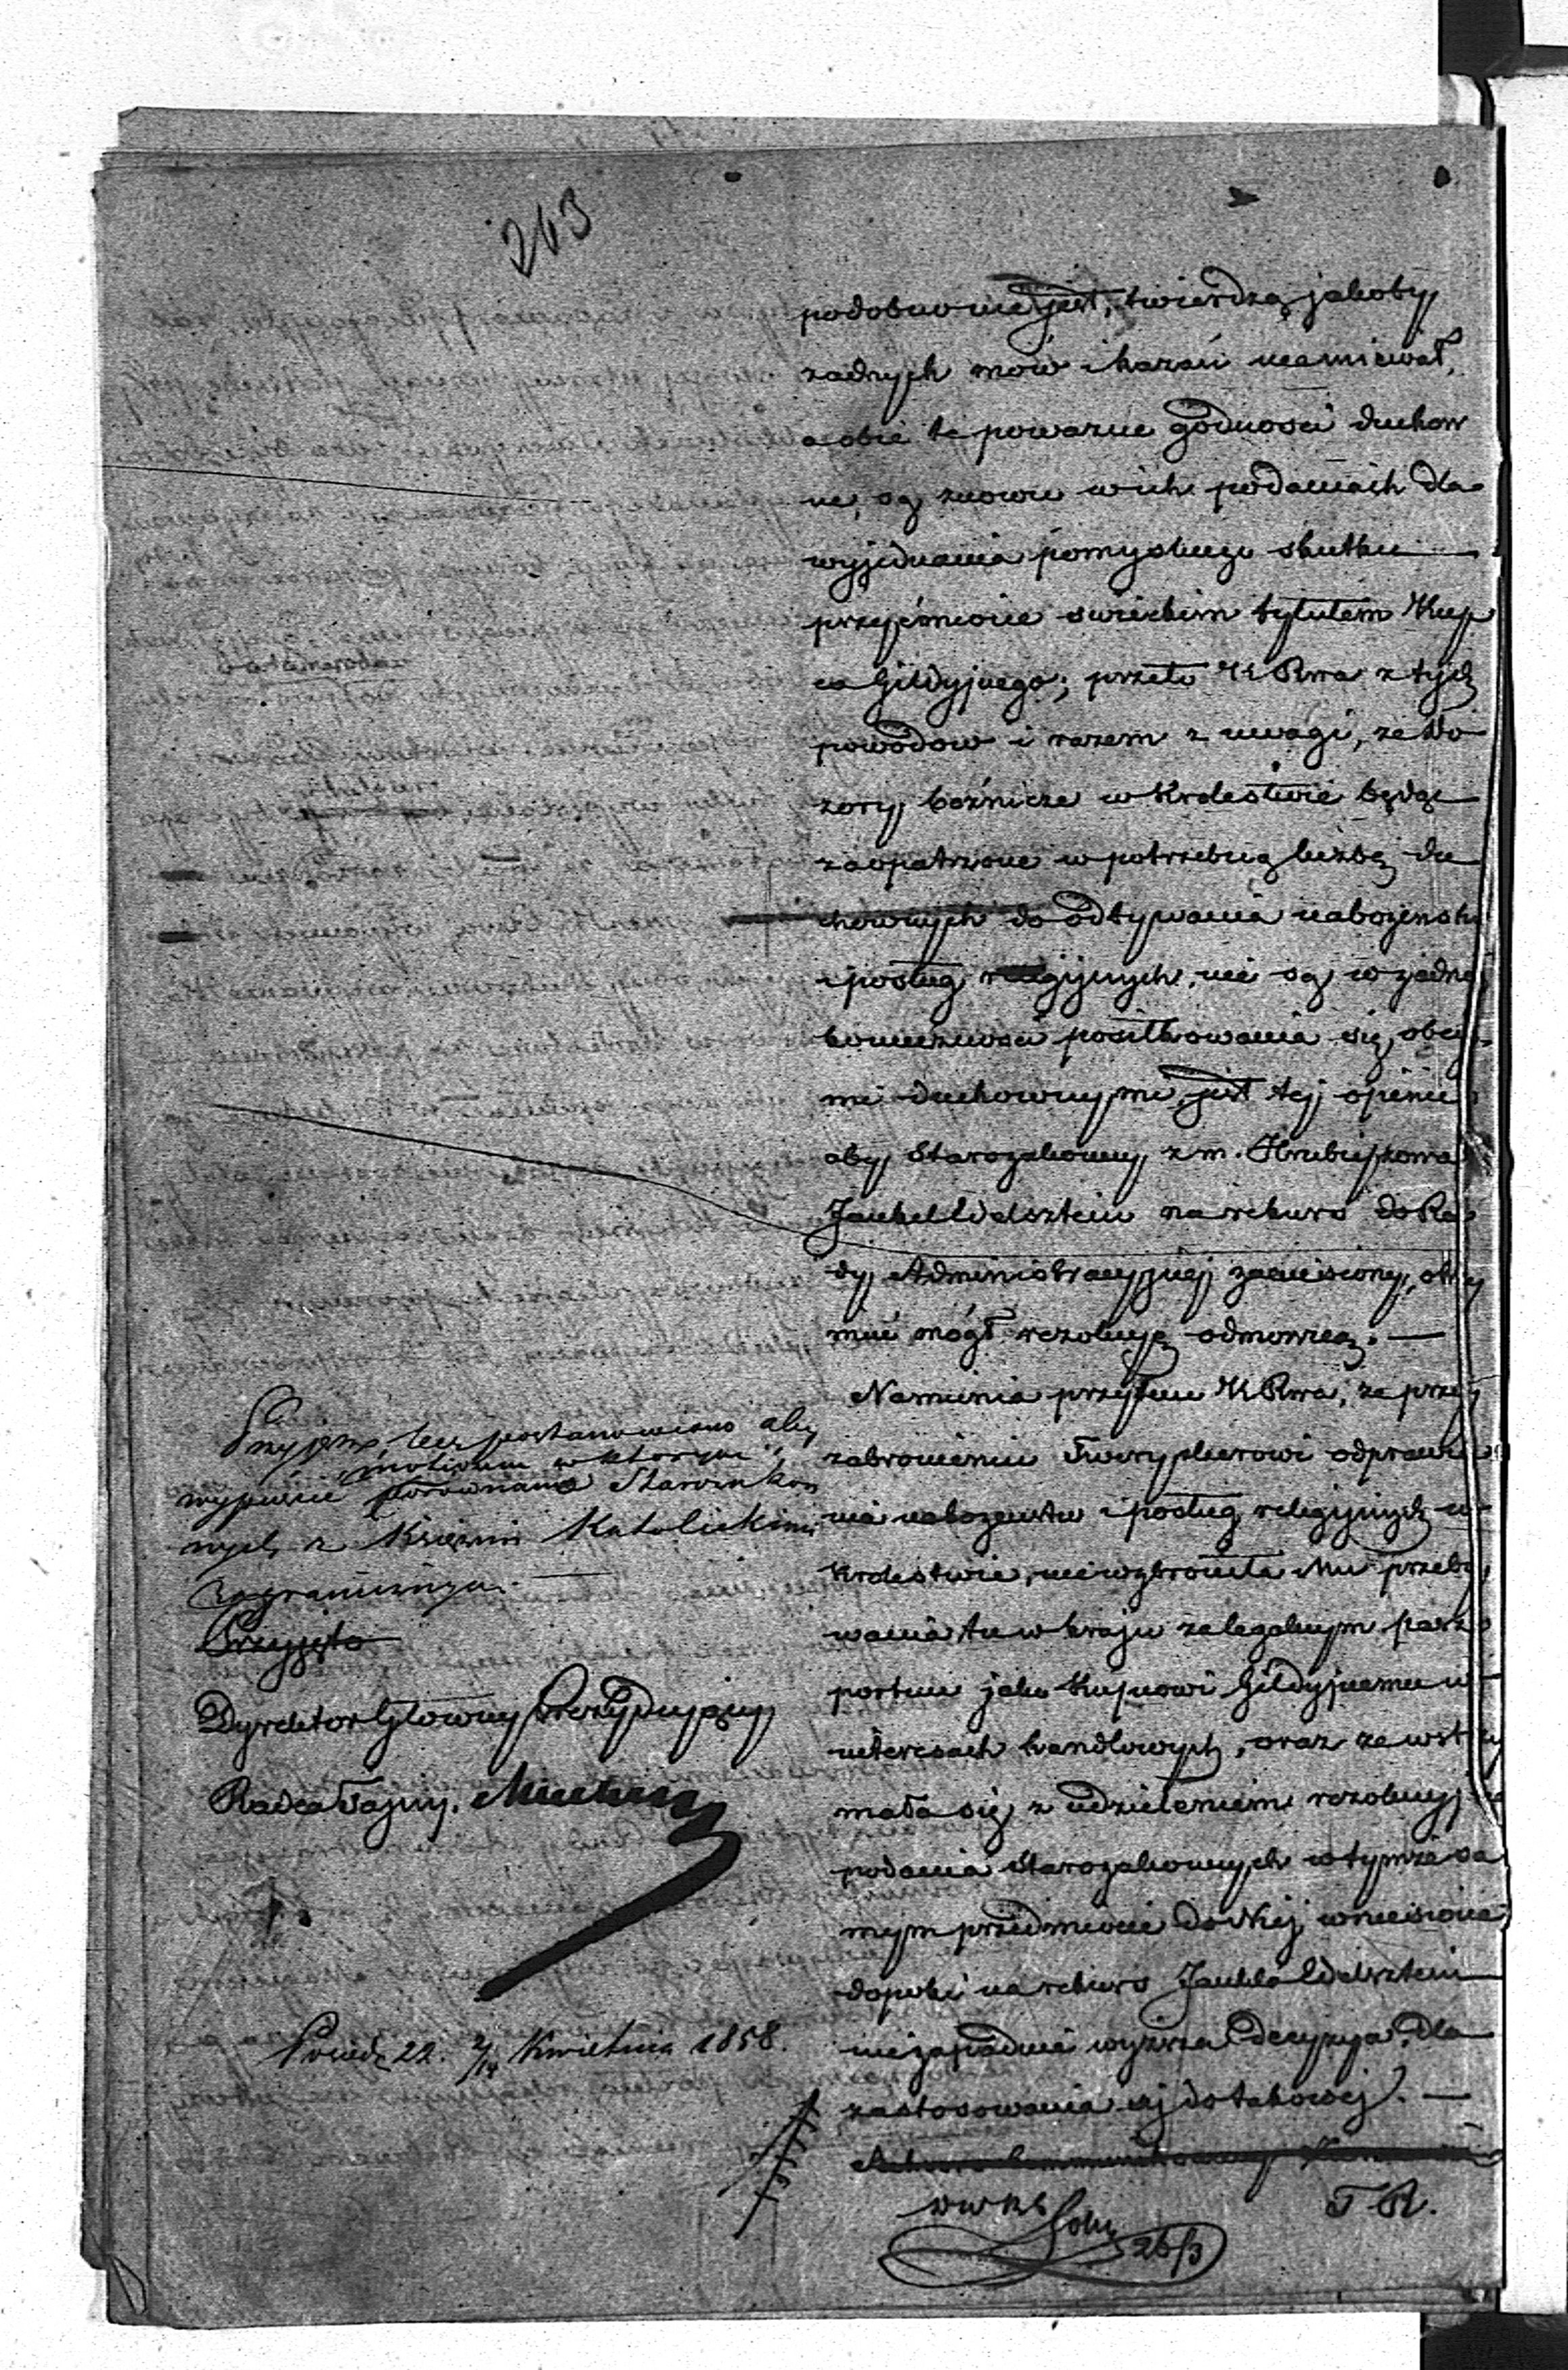 263
podobno nie jest, twierdzą jakoby
żadnych mów i kazań nie miewał,
a obie te poważne godności duchow
ne, są znowu w ich podaniach dla
wyjednania pomyslnego skutku
przyćmione świeckim tytułem Kup
ca Gildyjnego; przeto K R wa z tych
powodów i razem z uwagi, że Do
zory bóźnicze w Królestwie będąc
zaopatrzone w potrzebną liczbę du
chownych do odbywania nabożeństw
i posług religijnych, nie są w żadnej
konieczności posiłkowania się obcy
mi duchownymi, jest tej opinii
aby Starozakonny z m. Hrubieszowa
Jankel Udelsztein na rekurs do Ra
dy Administracyjnej zaniesiony, otrzy
mać mógł rezolucyą odmowną. —
Namienia przytem K R wa, że przy
zabronieniu Twerykierowi odprawia
nia nabożeństw i posług religijnych w
Królestwie, nie wzbroniła Mu przeby
wania tu w kraju za legalnym pasz
portem jako Kupcowi Gildyjnemu w
interesach handlowych, oraz że wstrzy
mała się z udzieleniem rezolucyi na
podania Starozakonnych w tymże sa
mym przedmiocie do Niej wniesione,
dopóki na rekurs Jankla Udelsztein
nie zapadnie wyższa decyzya, dla
zastosowania się do takowej. —
T R.
26/3
Przyjęto, lecz postanowiono aby
motivum w którym
wypuścić porównano Starozakon
nych z Księżmi Katolickimi
zagranicznymi. —
Przyjęto
Dyrektor Główny Prezydujący
Radca Tajny. Muchanow
Posiedz. 22. 2/14 Kwietnia 1858.